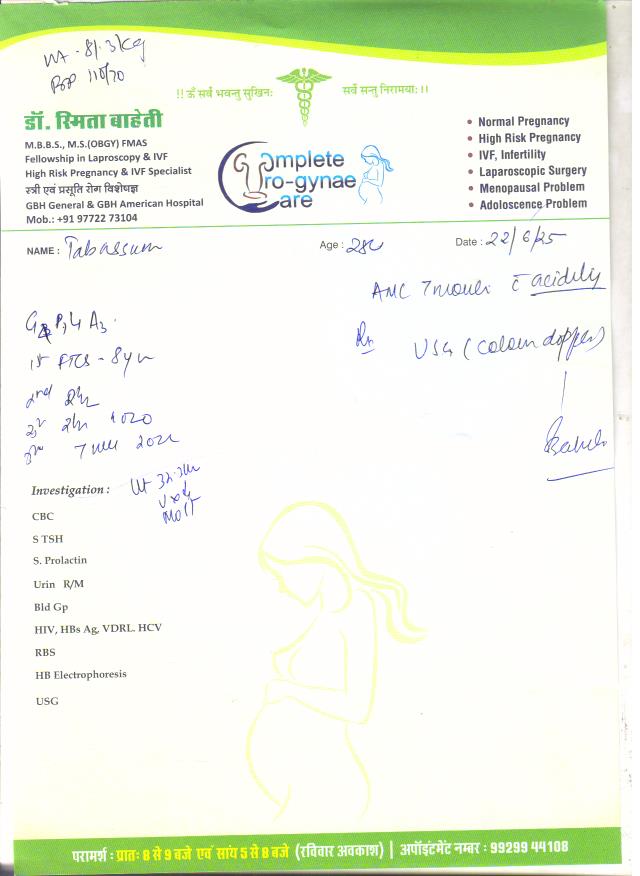 Wt - 81.3kg
BP 110/70
!! ॐ सर्वे भवन्तु सुखिनः सर्वे सन्तु निरामयाः !!
डॉ. स्मिता बाहेती
M.B.B.S., M.S.(OBGY) FMAS
Fellowship in Laproscopy & IVF
High Risk Pregnancy & IVF Specialist
स्त्री एवं प्रसूति रोग विशेषज्ञ
GBH General & GBH American Hospital
Mob.: +91 97722 73104
Complete
Uro-gynae
Care
• Normal Pregnancy
• High Risk Pregnancy
• IVF, Infertility
• Laparoscopic Surgery
• Menopausal Problem
• Adoloscence Problem
NAME : Tabassum Age : 28 Date : 22/6/25
AMC 7 c acidity
Rx USG (colour doppler)
1st FTCS - 8yr
2nd
2020
7
Investigation :
CBC
S TSH
S. Prolactin
Urin R/M
Bld Gp
HIV, HBs Ag, VDRL. HCV
RBS
HB Electrophoresis
USG
परामर्श : प्रातः 8 से 9 बजे एवं सांय 5 से 8 बजे (रविवार अवकाश) | अपॉइंटमेंट नम्बर : 99299 44108